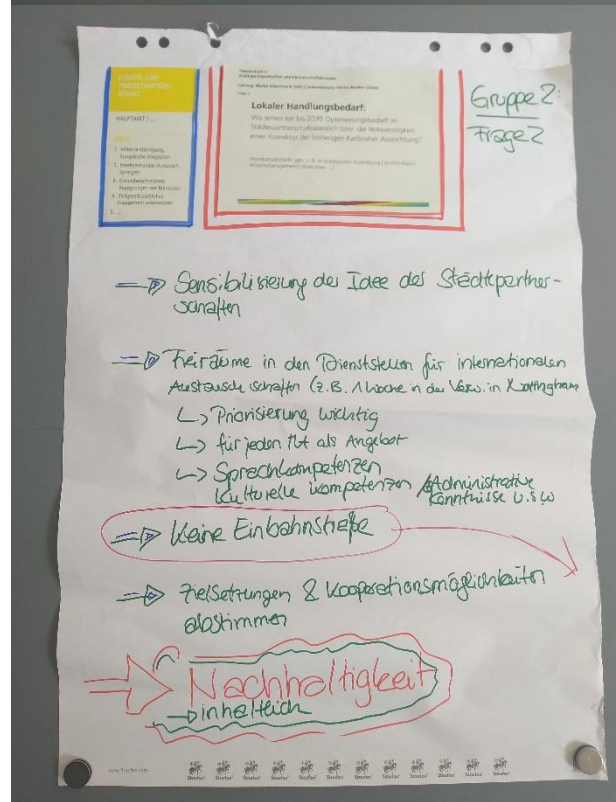 STÄDTE- UND
SCHAFT
HAUPTAMT | ...
1. Völkerverständigung,
Europäische Integration
2. Interkommunaler Austausch,
3. Grenzüberschreitende
Begegnungen von Menschen
4. Zivilgesellschaftliches
Engagement
5. ...
Lokaler Handlungsbedarf:
Wo sehen wir bis 2035 Optimierungsbedarf im
Städtepartnerschaftsbereich bzw. die Notwendigkeit
einer Korrektur der bisherigen Karlsruher Ausrichtung?
Gruppe 2:
Frage 2
Sensibilisierung der Idee der Städtepartner-
schaften
Freiräume in den Dienststellen für internationalen
Austausch schaffen (z.B. 1 Woche in der Verw. in Nottingham
Priorisierung wichtig
für jeden MA als Angebot
Sprachkompetenzen
Kulturelle Kompetenzen / Administrative
Kenntnisse u.s.w
Keine Einbahnstraße
Zielsetzungen & Kooperationsmöglichkeiten
abstimmen
Nachhaltigkeit
inhaltlich